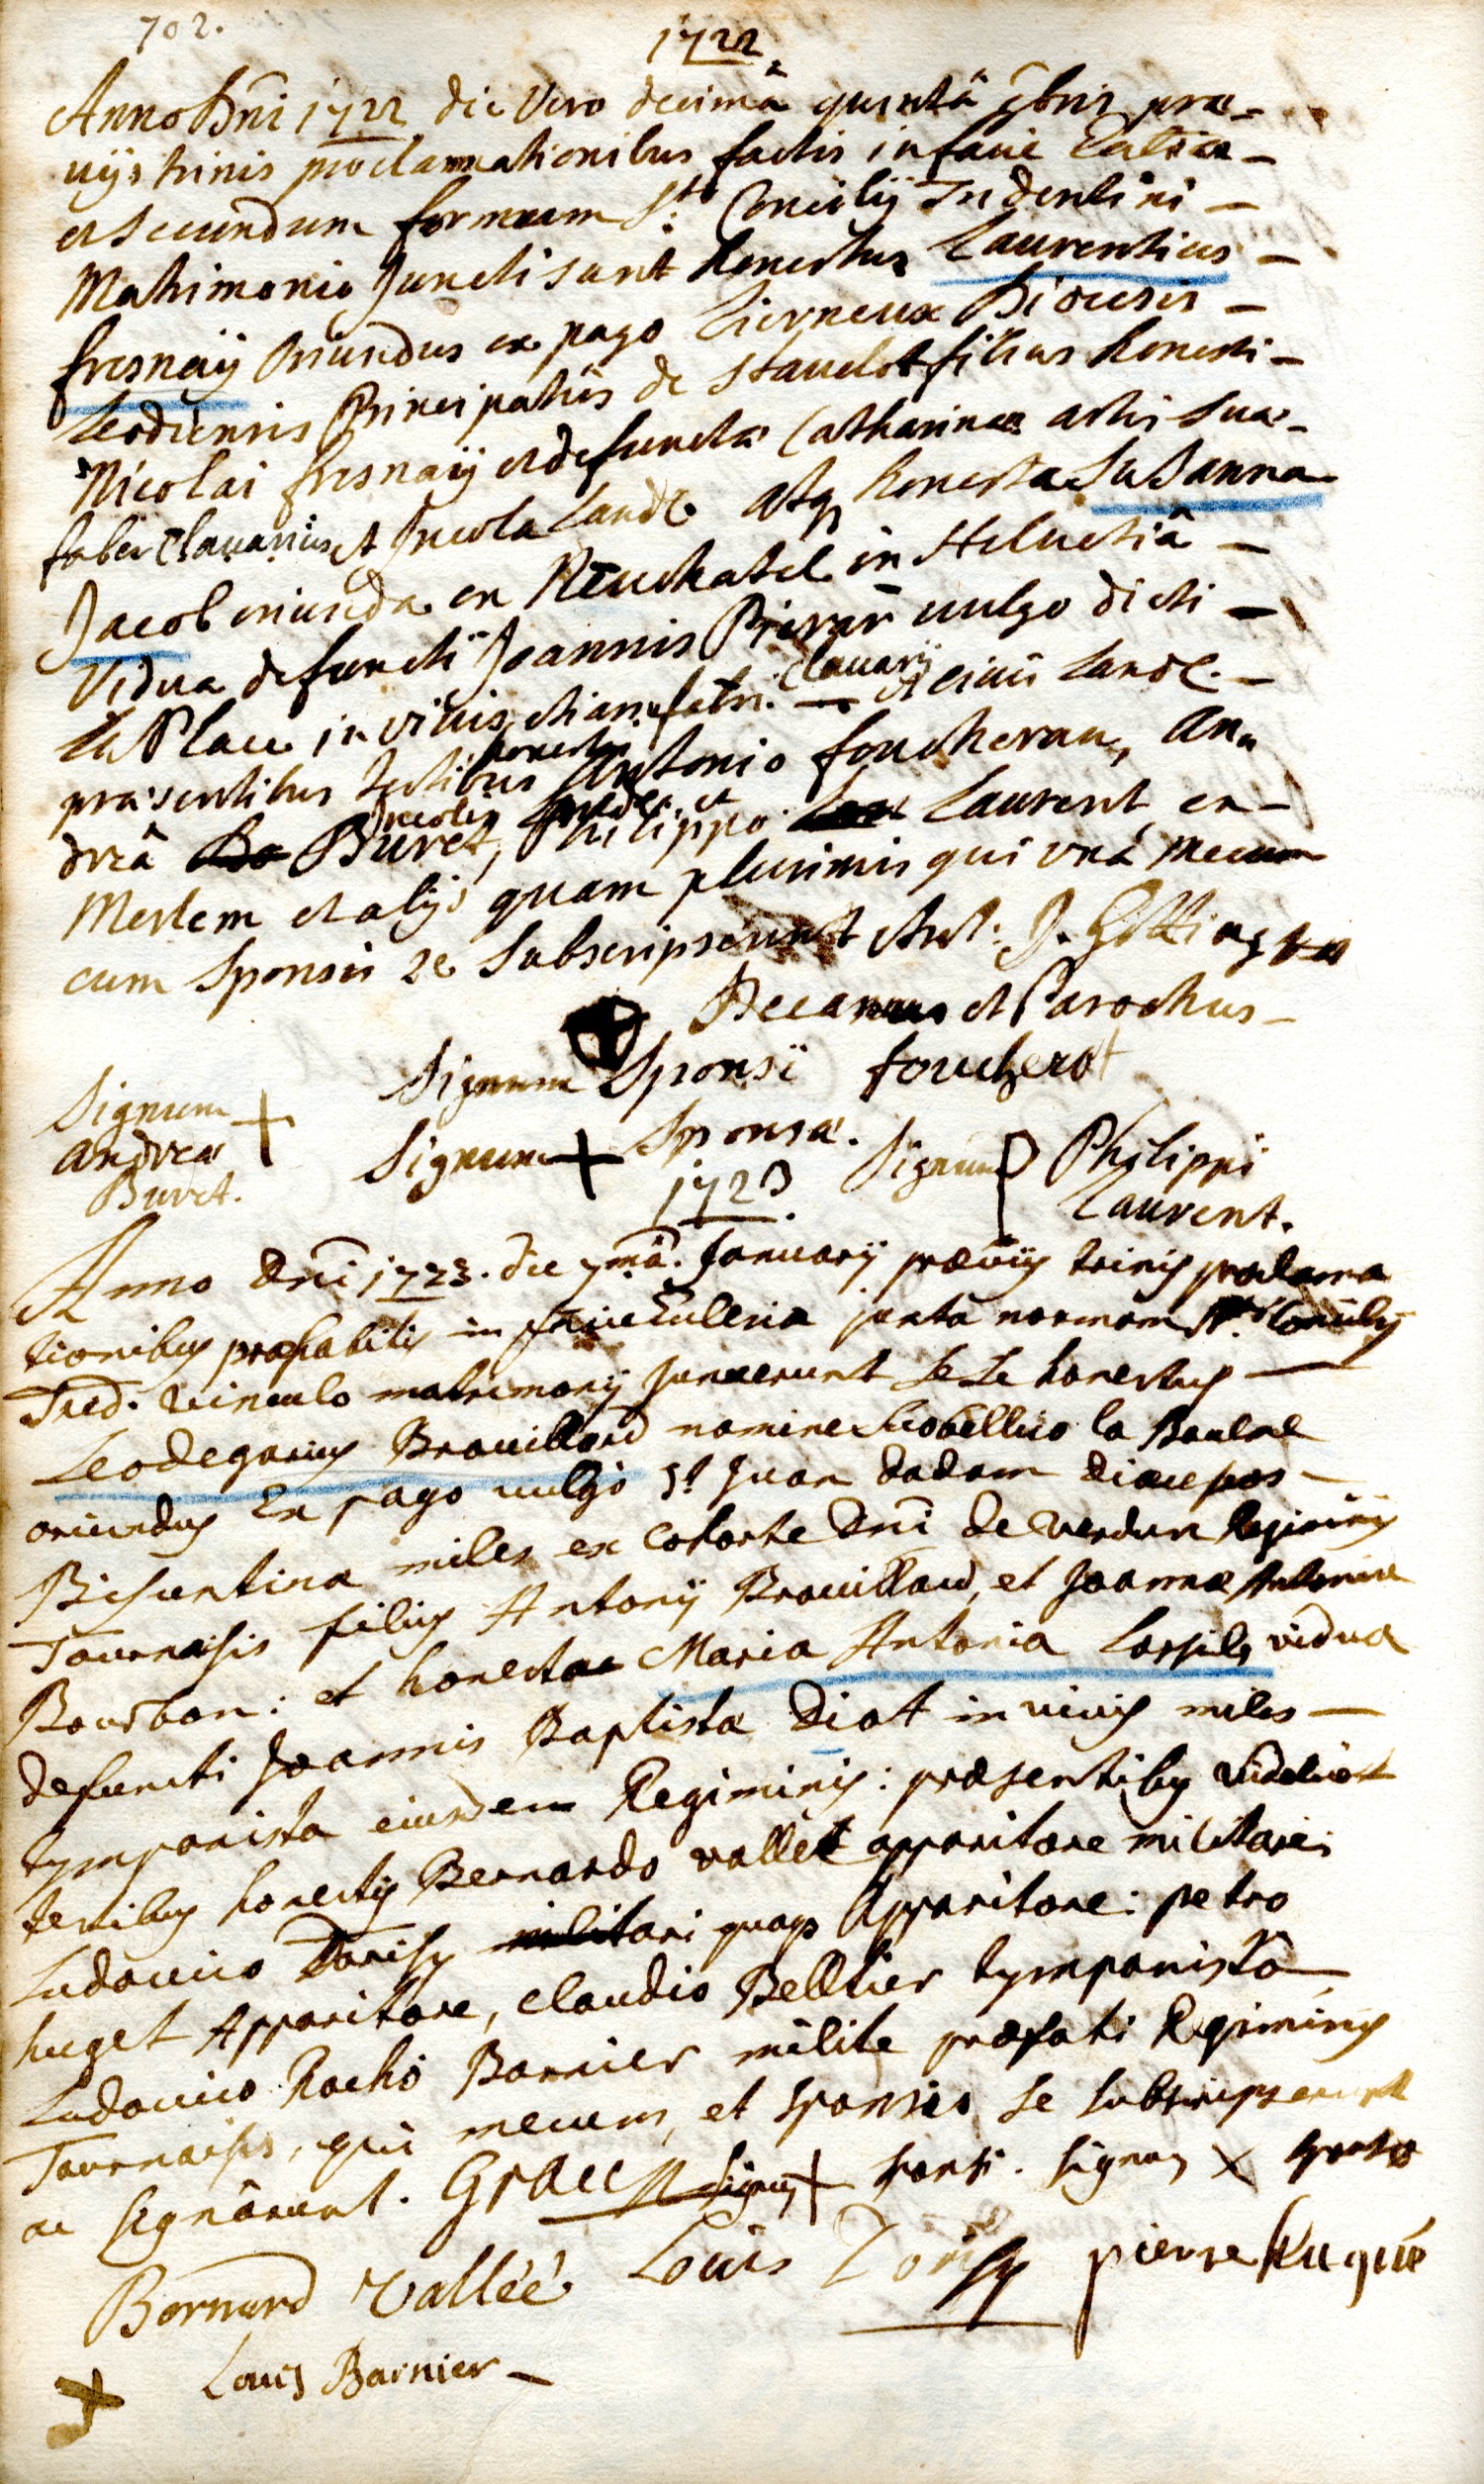 702.
1722
Anno Dñi 1722 die Vero decimâ quintâ præ-
uijs trinis proclamationibus factis in facie
et secundum formam S.ti Concilij Tridentini -
Matrimonio Juncti sunt honestus Laurentius -
fresnaij oriundus ex pago Lierneux Diœcesis -
Leodiensis Principatûs de Stauelot filius honesti -
Nicolai fresnaij et defunctæ Catharinæ artis suæ -
faber Clauarius et Incola Landæ atq honesta Susanna
Jacob oriunda ex Neuchatel in Helvetiâ -
Vidua defuncti Joannis uulgo dicti -
la Place in viuis etiam fabri Clauarij et ciuis Landæ. -
præsentibus testibus honestis Antonio foucherau, An-
dreâ Buret, Incolis Landæ, et Philippo Laurent, ex -
Merlem et alijs quam plurimis qui unâ mecum
cum Sponsis se Subscripserunt
Decanus et Parochus -
Signum Sponsi fouchero
Signum + Andreæ Buret.
Signum + Sponsæ.
Signum P Philippi
Laurent.
1723.
Anno Dñi 1723. die 7mâ. Januarij præuijs trinis proclama
tionibus præhabitis in facie Eulesia juxta normam S.ti Concilij
Tred. vinculo matrimonij junxerunt se se honestus -
Leodegarius Brouillard nomine la Baulme
oriundus Ex pago uulgo St Juan dadam diœcesos -
Bisuntina miles ex Cohorte Dñi de Verdun Regiminis
Tournaisis filius Antonij Brouillard, et Joannæ Antoniæ
Bourbon: et honesta Maria Antonia vidua
defuncti Joannis Baptistæ Diot in viuis miles -
tympanista eiusdem Regiminis: præsentibus videlicet
testibus honestis Bernardo vallet apparitore militari
Ludouico militari quoq Apparitore: petro
huget Apparitore, claudio Belltier tympanistâ
Ludouico Rocho Barnier milite præfati Regiminis
Tournaisis, qui mecum, et sponsis se subscripserunt
ac signârunt. Signum + sponsi. Signum x sponsæ
Bernard Vallée Louis pierre hugué
x Louis Barnier -